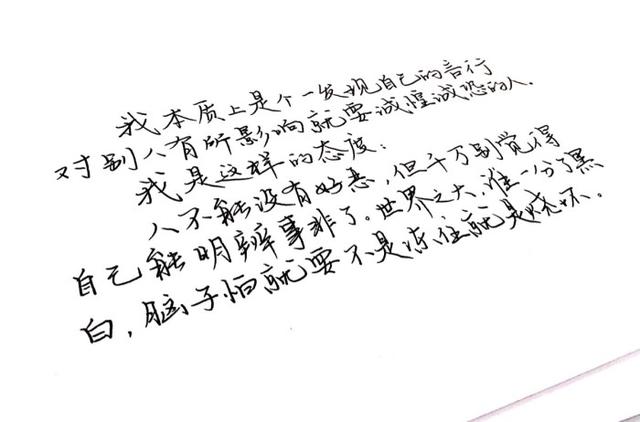 我本质上是个一发现自己的言行
对别人有所影响就要诚惶诚恐的人.
我是这样的态度:
人不能没有好恶,但千万别觉得
自己能明辨事非了。世界之大,谁一分了黑
白,脑子怕就要不是冻住就是烧坏。